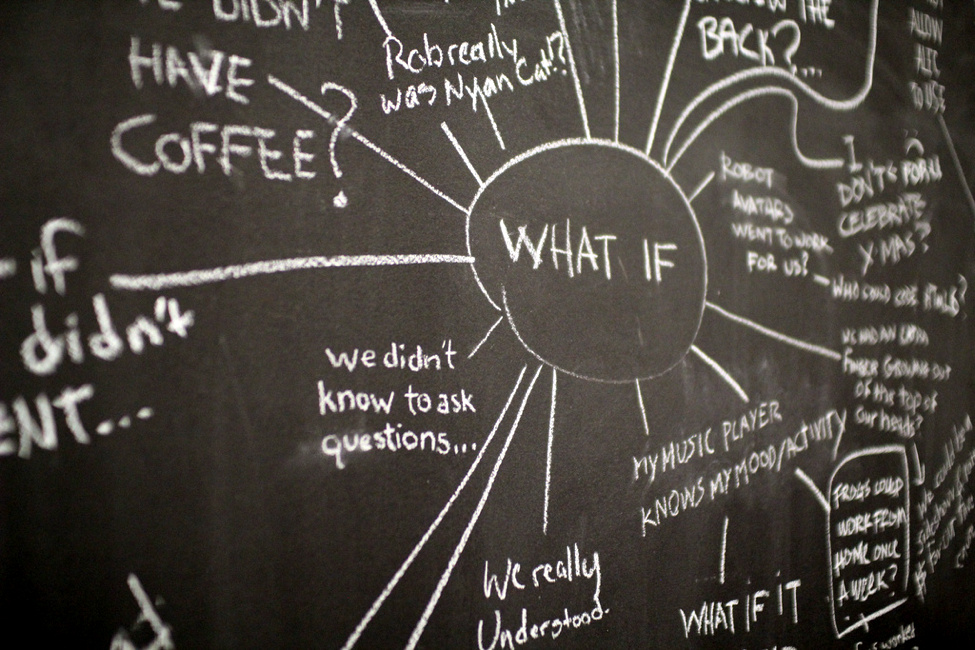 WE DIDN'T
HAVE
COFFEE?
Rob really
was Nyan Cat!?
THE
BACK?...
ALLOW
ALEC
TO USE
WHAT IF
I
DON'T
CELEBRATE
XMAS?
ROBOT
AVATARS
WENT TO WORK
FOR US?
WHO COULD CODE HTML5?
FINGER GROWING OUT
of the top of
our heads?
if
didn't
ENT...
we didn't
know to ask
questions...
MY MUSIC PLAYER
KNOWS MY MOOD/ACTIVITY
FROGS COULD
WORK FROM
HOME ONCE
A WEEK?
we could
We really
Understood.
WHAT IF IT